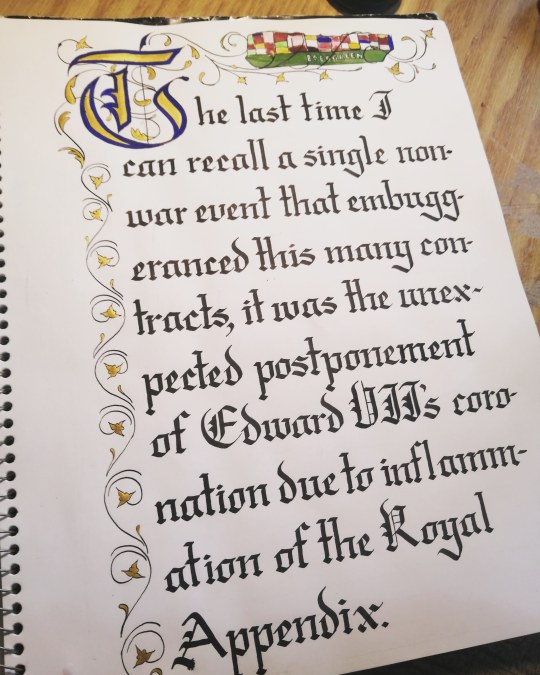 The last time I
can recall a single non-
war event that embugg-
eranced this many con-
tracts, it was the unex-
pected postponement
of Edward VII's coro-
nation due to inflamm-
ation of the Royal
Appendix.